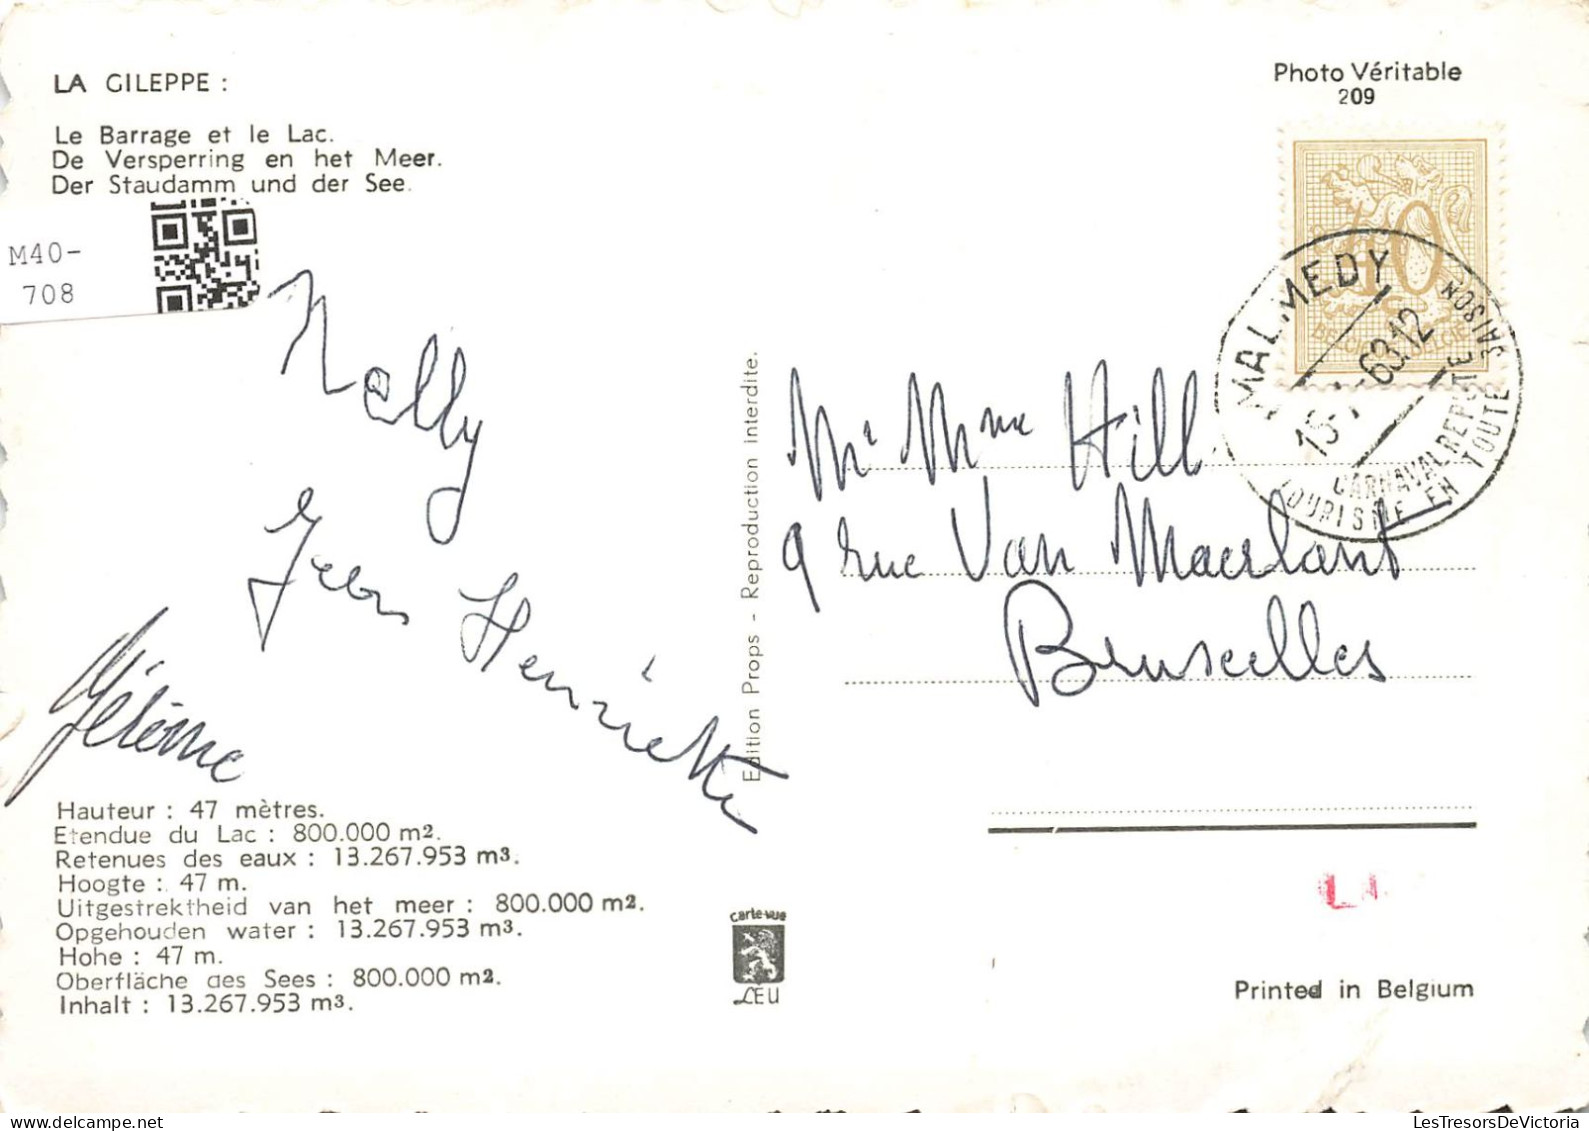 LA GILEPPE :
Le Barrage et le Lac.
De Versperring en het Meer.
Der Staudamm und der See.
M40-
708
Photo Véritable
209
40
MALMEDY
63.12
CARNAVAL REPUTE
TOURISME EN TOUTE SAISON
Nelly
Henriette
Jérôme
Mr Mme Hill
9 rue Van Maerlant
Bruxelles
Edition Props - Reproduction interdite.
Hauteur : 47 mètres.
Etendue du Lac : 800.000 m2.
Retenues des eaux : 13.267.953 m3.
Hoogte : 47 m.
Uitgestrektheid van het meer : 800.000 m2.
Opgehouden water : 13.267.953 m3.
Hohe : 47 m.
Oberfläche des Sees : 800.000 m2.
Inhalt : 13.267.953 m3.
carte-vue
LEU
Printed in Belgium
LesTresorsDeVictoria